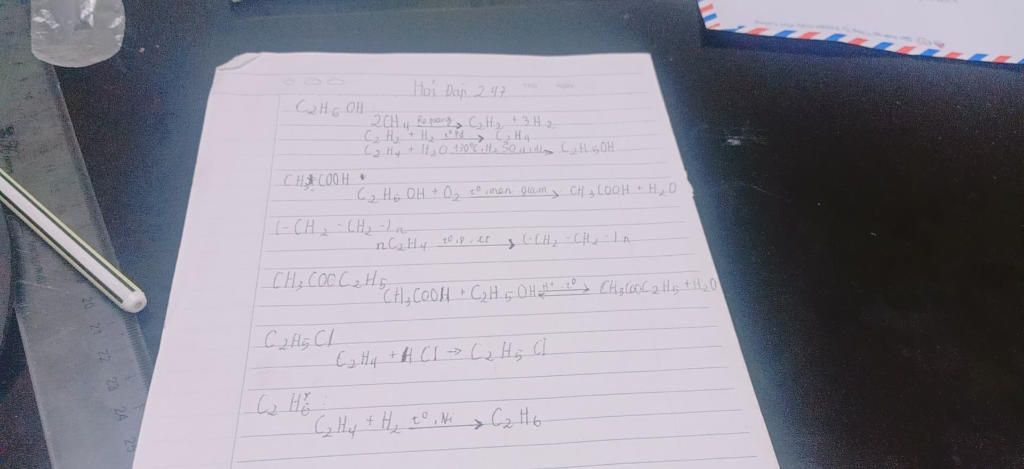 Hỏi Đáp 247
C2H6OH
2CH4 → C2H2 + 3H2
C2H2 + H2 t° Pd → C2H4
C2H4 + H2O 170°C, H2SO4 → C2H5OH
CH3COOH
C2H6OH + O2 t°, men giấm → CH3COOH + H2O
(-CH2-CH2-)n
nC2H4 t°, p, xt → (-CH2-CH2-)n
CH3COOC2H5
CH3COOH + C2H5OH H+, t° ⇌ CH3COOC2H5 + H2O
C2H5Cl
C2H4 + HCl → C2H5Cl
C2H6:
C2H4 + H2 t°, Ni → C2H6
20 21 22 23 24 25